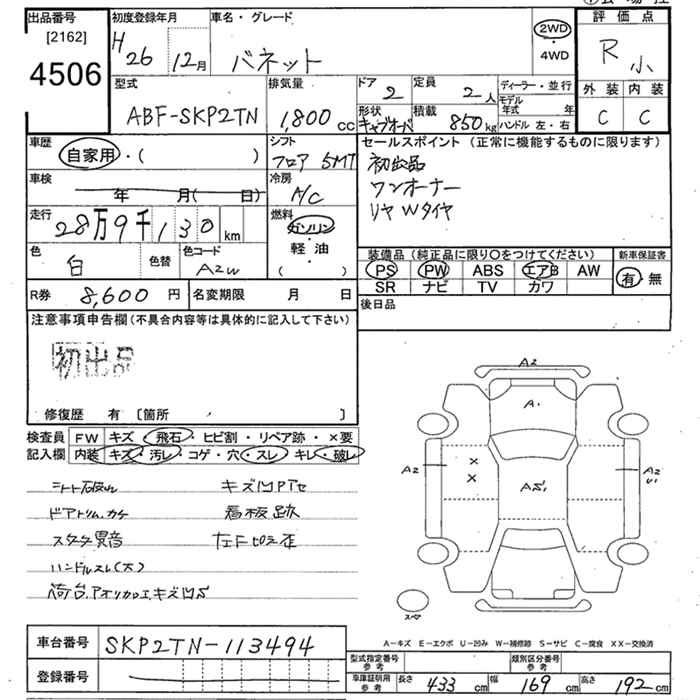 出品番号 初度登録年月 車名・グレード 評価点
[2162]
4506
H 26 12月 バネット 2WD・4WD R 小
型式 排気量 ドア 定員 ディーラー・並行 外装 内装
ABF-SKP2TN 1,800cc 2 2人 モデル年式 年 C C
形状 積載 ハンドル 左・右
キャブオーバ 850kg
車歴 シフト セールスポイント (正常に機能するものに限ります)
自家用・( ) フロア 5MT 初出品
車検 冷房 ワンオーナー
年 月( 日) A/C リヤWタイヤ
走行 燃料
28万9千130km ガソリン・軽油・( )
色 色替 色コード
白 A2W
装備品 (純正品に限り○をつけてください) 新車保証書
PS PW ABS エアB AW 有・無
SR ナビ TV カワ
R券 8,600円 名変期限 月 日 後日品
注意事項申告欄(不具合内容等は具体的に記入して下さい)
初出品
修復歴 有 [箇所 ]
検査員 FW キズ・飛石・ヒビ割・リペア跡・×要
記入欄 内装 キズ・汚レ・コゲ・穴・スレ・キレ・破レ
シート破れ キズ凹P下セ
ドアトリム.カケ 看板跡
スタータ異音
ハンドルスレ(大)
荷台.アオリカロエ.キズ凹S
A2
A・
A2
A2
U1
AS1
A-キズ E-エクボ U-凹み W-補修跡 S-サビ C-腐食 XX-交換済
車台番号 SKP2TN-113494
登録番号
型式指定番号 参考 類別区分番号 参考
車庫証明用 参考 長さ 433cm 幅 169cm 高さ 192cm